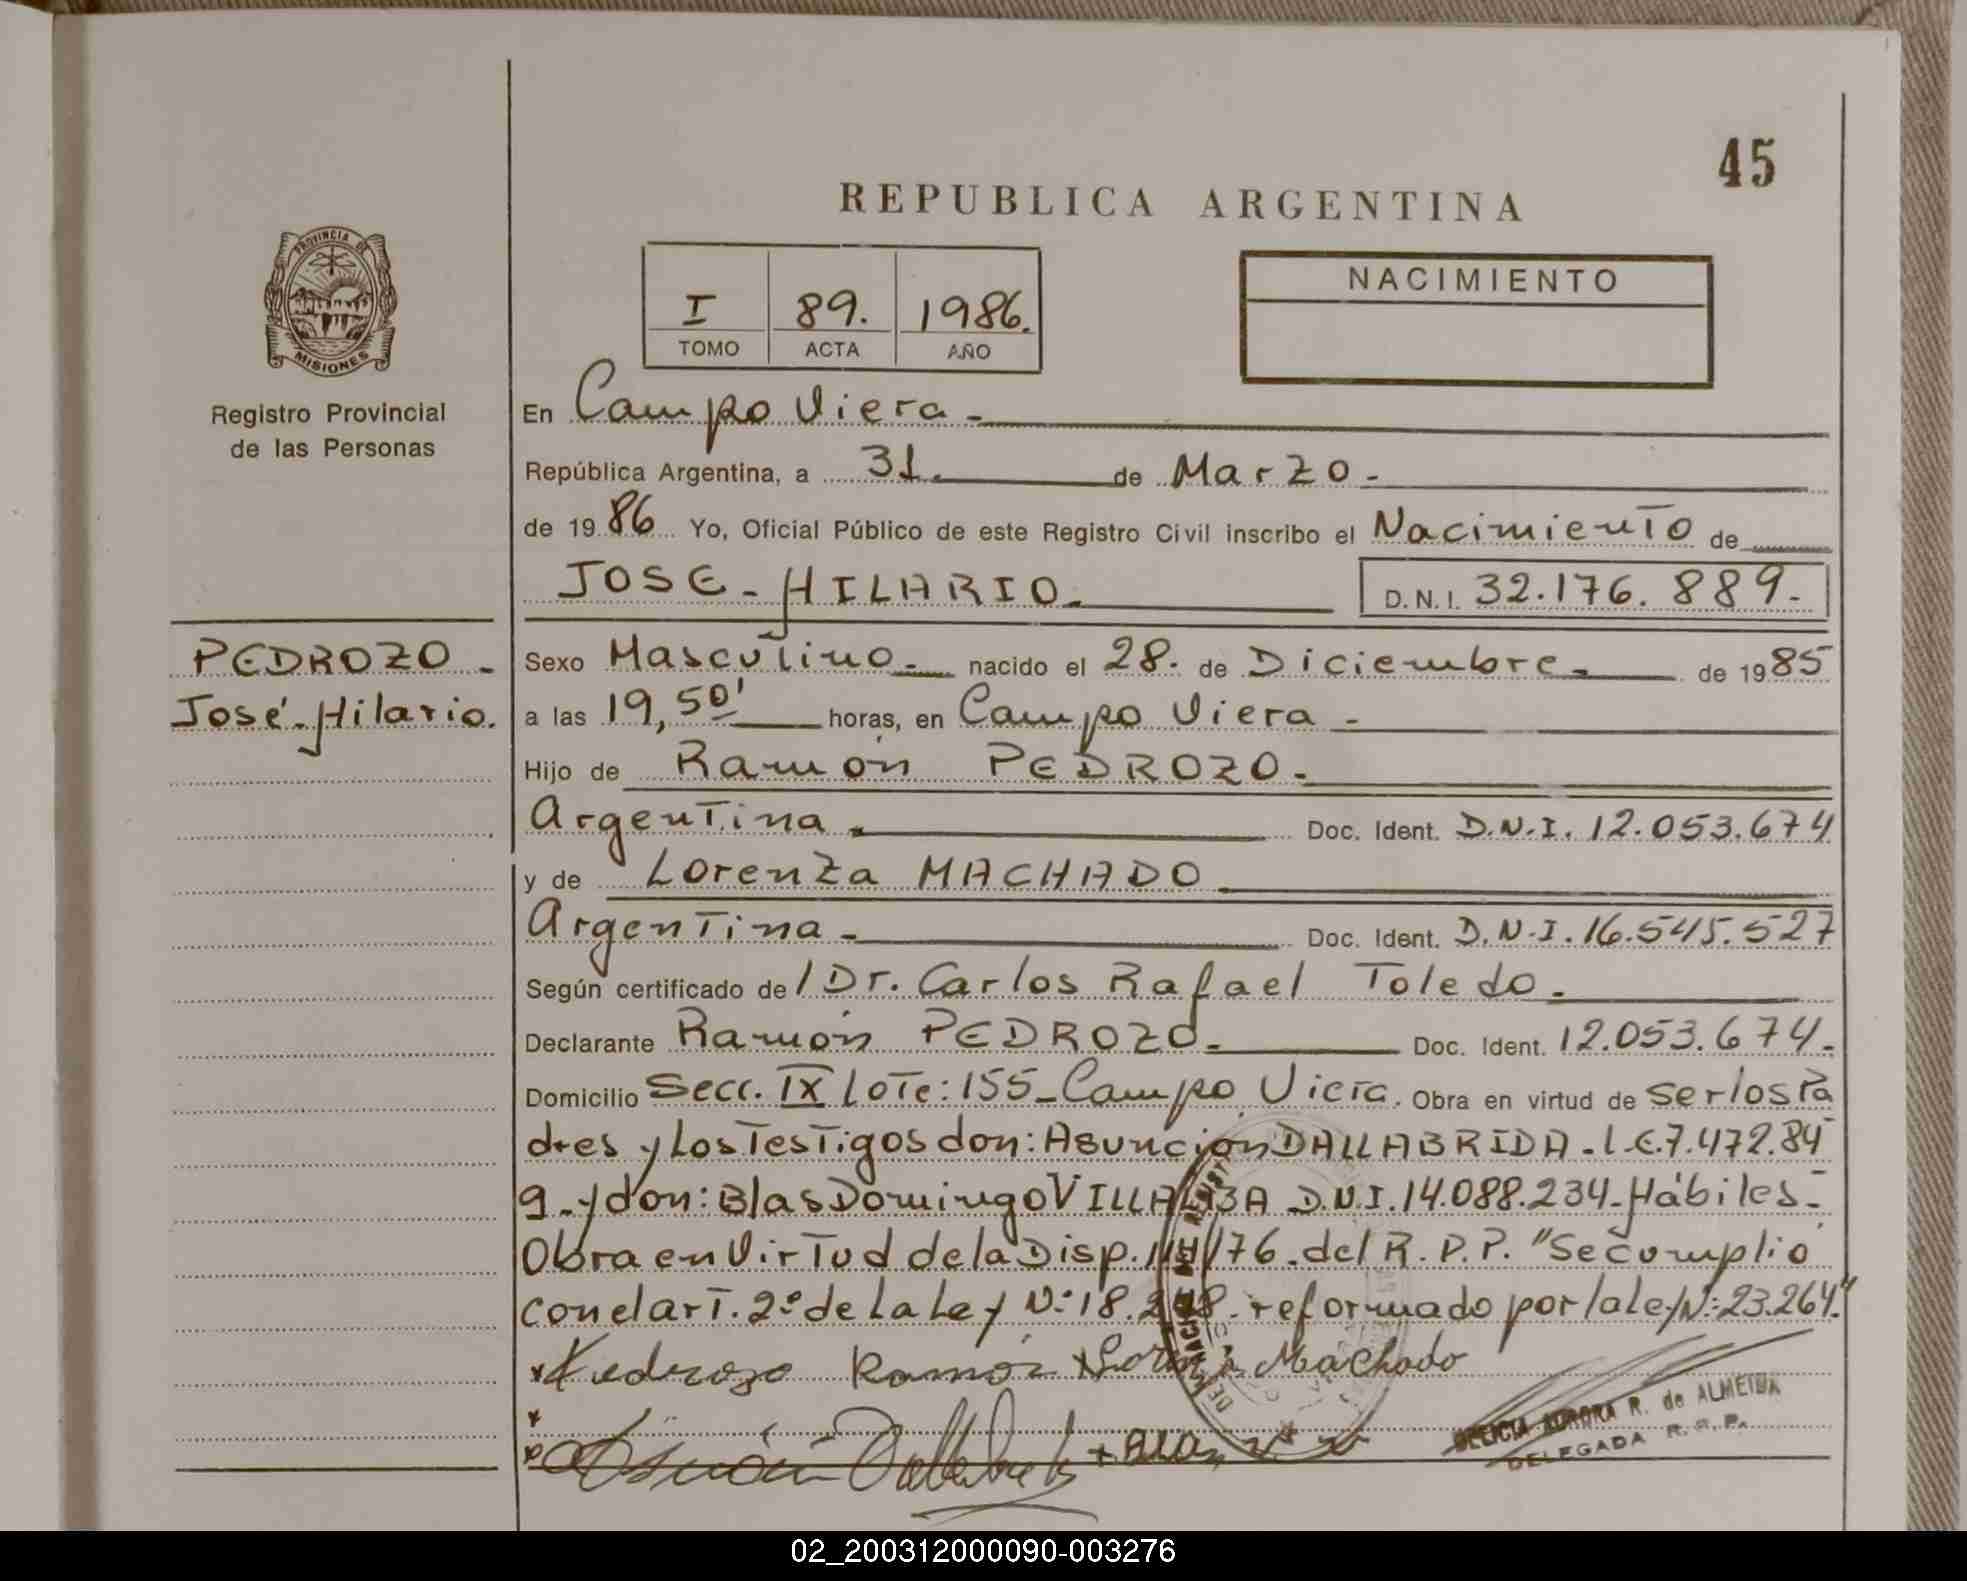 45
REPUBLICA ARGENTINA
PROVINCIA DE
MISIONES
Registro Provincial
de las Personas
I 89. 1986.
TOMO ACTA AÑO
NACIMIENTO
En Campo Viera -
República Argentina, a 31. de Marzo -
de 19 86 Yo, Oficial Público de este Registro Civil inscribo el Nacimiento de
JOSE - HILARIO. D.N.I. 32.176.889.-
PEDROZO -
José - Hilario.
Sexo Masculino - nacido el 28. de Diciembre - de 19 85
a las 19,50' horas, en Campo Viera -
Hijo de Ramón PEDROZO -
Argentina - Doc. Ident. D.N.I. 12.053.674
y de Lorenza MACHADO
Argentina - Doc. Ident. D.N.I. 16.545.527
Según certificado de / Dr. Carlos Rafael Toledo.
Declarante Ramón PEDROZO - Doc. Ident. 12.053.674.-
Domicilio Secc. IX lote: 155 - Campo Viera. Obra en virtud de ser los Pa
dres y Los Testigos don: Asunción DALLABRIDA - L.E. 7.472.84
9 - y don: Blas Domingo VILLALBA D.N.I. 14.088.234 - Hábiles -
Obra en Virtud de la Disp. /76. del R.P.P. "Se cumplió
con el art. 2º de la Ley Nº: 18.248. reformado por la ley Nº: 23.264."
Pedrozo Ramón Machado
+ Blas
DELICIA AURORA R. de ALMEIDA
DELEGADA R.P.P.
02_200312000090-003276